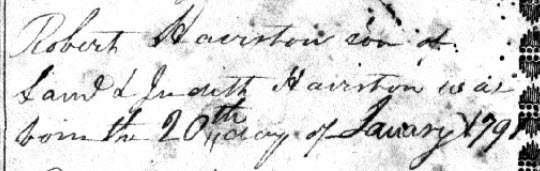 Robert Hairston son of
Saml & Judith Hairston was
born the 20th day of Januarry 179